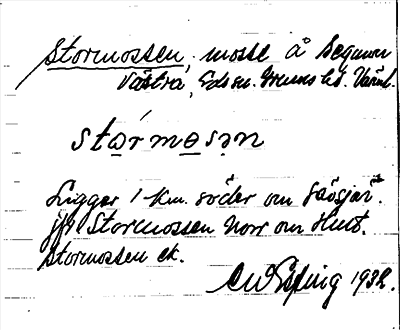 Stormossen, mosse å Segmon
Västra, Eds sn. Grums hd. Värml.
stårmosən
Ligger 1 km. söder om
jfr Stormossen norr om Hult.
Stormossen ek.
1932.